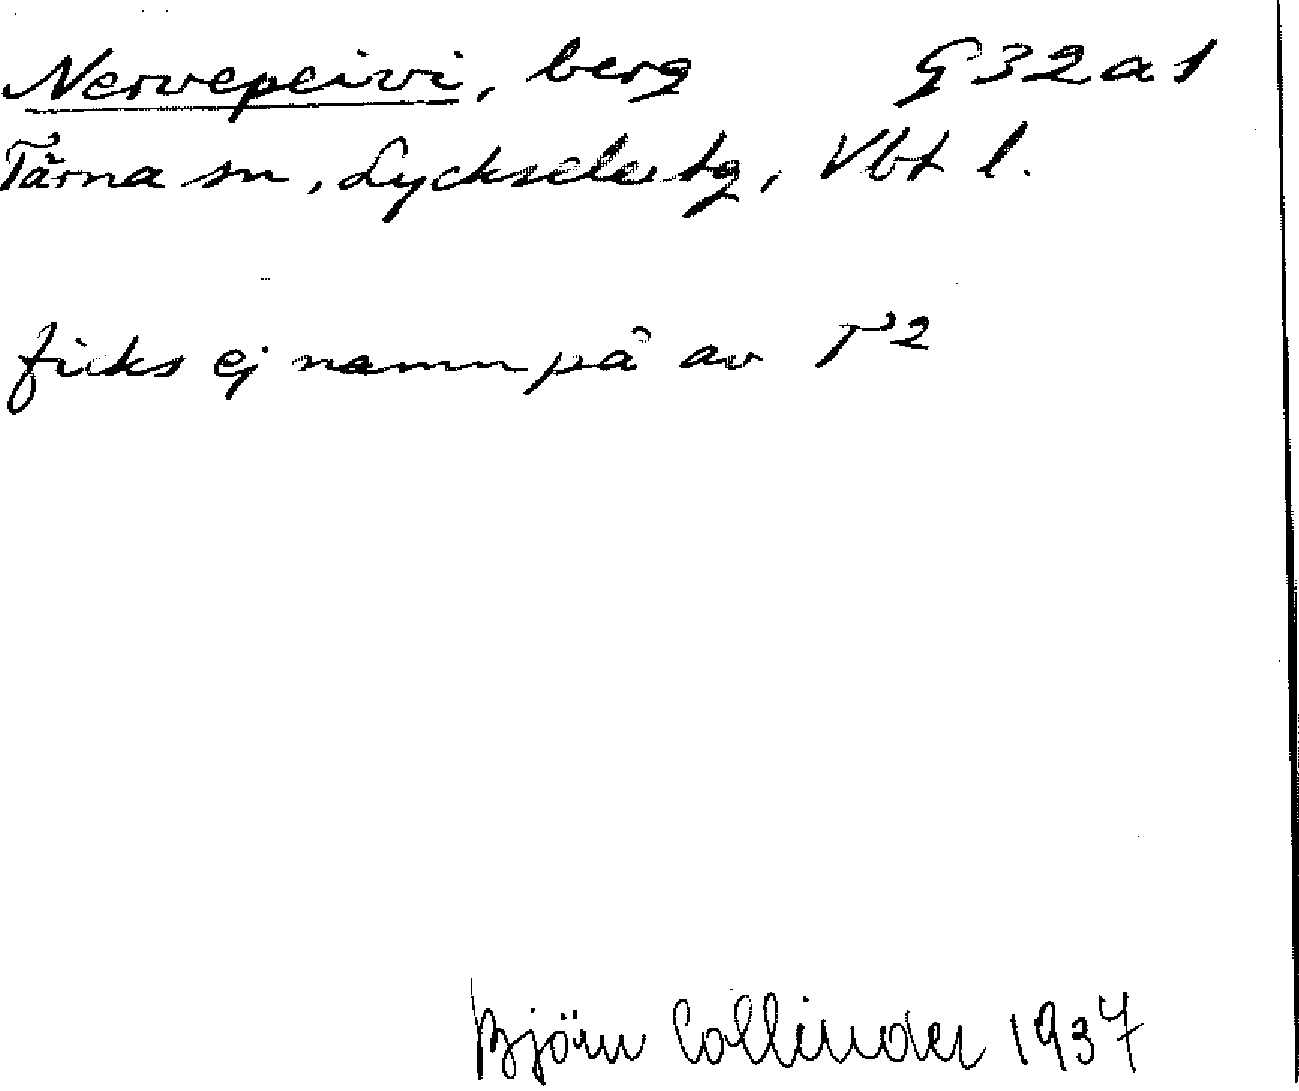 Nervepeivi, berg G32a1
Tärna sn, Lycksele tg, Vbt l.
ficks ej namn på av T2
Björn Collinder 1937